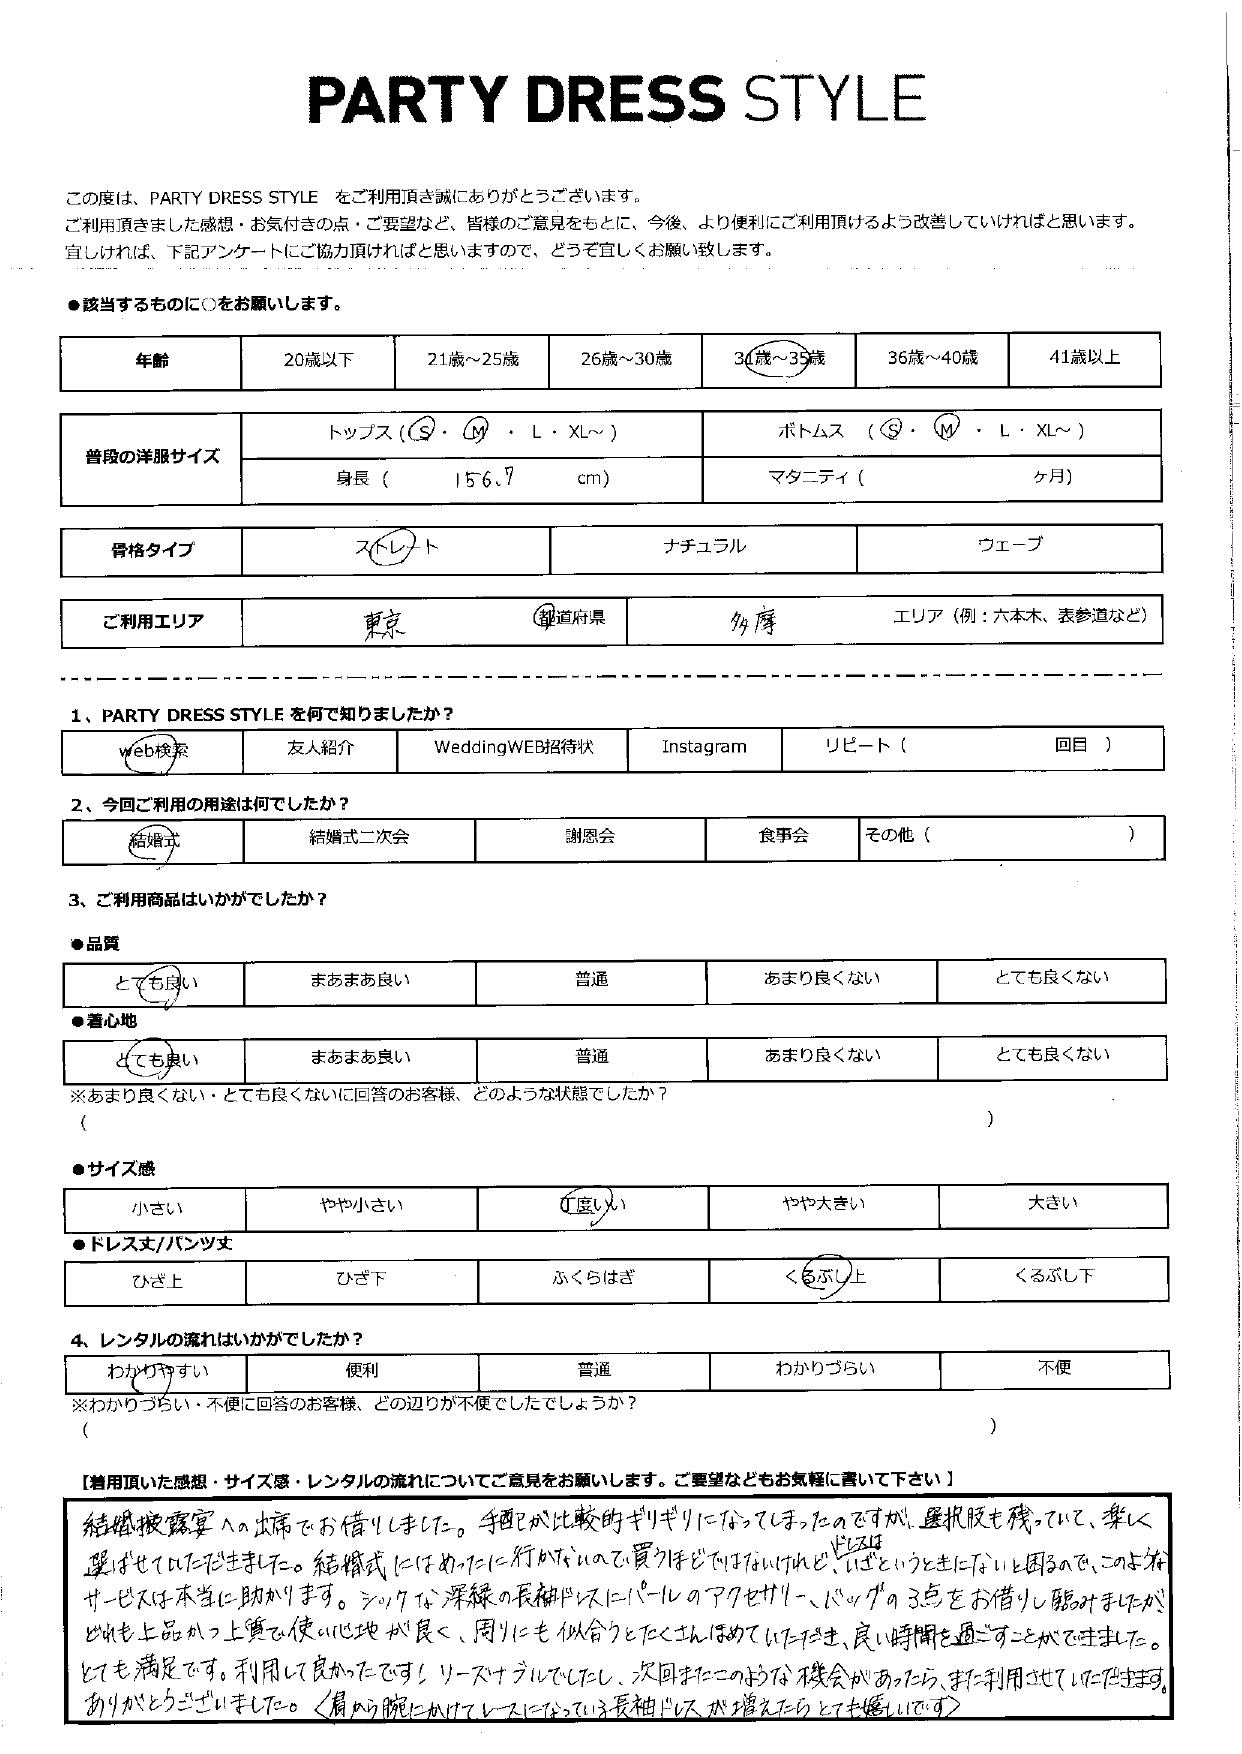 PARTY DRESS STYLE
この度は、PARTY DRESS STYLE をご利用頂き誠にありがとうございます。
ご利用頂きました感想・お気付きの点・ご要望など、皆様のご意見をもとに、今後、より便利にご利用頂けるよう改善していければと思います。
宜しければ、下記アンケートにご協力頂ければと思いますので、どうぞ宜しくお願い致します。
●該当するものに○をお願いします。
年齢 20歳以下 21歳～25歳 26歳～30歳 31歳～35歳 36歳～40歳 41歳以上
普段の洋服サイズ トップス (S・M・L・XL～) ボトムス (S・M・L・XL～)
身長 ( 156.7 cm) マタニティ ( ヶ月)
骨格タイプ ストレート ナチュラル ウェーブ
ご利用エリア 東京 都道府県 多摩 エリア（例：六本木、表参道など）
1、PARTY DRESS STYLE を何で知りましたか？
web検索 友人紹介 WeddingWEB招待状 Instagram リピート ( 回目 )
2、今回ご利用の用途は何でしたか？
結婚式 結婚式二次会 謝恩会 食事会 その他 ( )
3、ご利用商品はいかがでしたか？
●品質
とても良い まあまあ良い 普通 あまり良くない とても良くない
●着心地
とても良い まあまあ良い 普通 あまり良くない とても良くない
※あまり良くない・とても良くないに回答のお客様、どのような状態でしたか？
( )
●サイズ感
小さい やや小さい 丁度いい やや大きい 大きい
●ドレス丈/パンツ丈
ひざ上 ひざ下 ふくらはぎ くるぶし上 くるぶし下
4、レンタルの流れはいかがでしたか？
わかりやすい 便利 普通 わかりづらい 不便
※わかりづらい・不便に回答のお客様、どの辺りが不便でしたでしょうか？
( )
【着用頂いた感想・サイズ感・レンタルの流れについてご意見をお願いします。ご要望などもお気軽に書いて下さい 】
結婚披露宴への出席でお借りしました。手配が比較的ギリギリになってしまったのですが、選択肢も残っていて、楽しく
選ばせていただきました。結婚式にはめったに行かないので買うほどではないけれど、ドレスはいざというときにないと困るので、このような
サービスは本当に助かります。シックな深緑の長袖ドレスにパールのアクセサリー、バッグの3点をお借りし臨みましたが、
どれも上品かつ上質で使い心地が良く、周りにも似合うとたくさんほめていただき、良い時間を過ごすことができました。
とても満足です。利用して良かったです！リーズナブルでしたし、次回またこのような機会があったら、また利用させていただきます。
ありがとうございました。〈肩から腕にかけてレースになっている長袖ドレスが増えたらとても嬉しいです〉